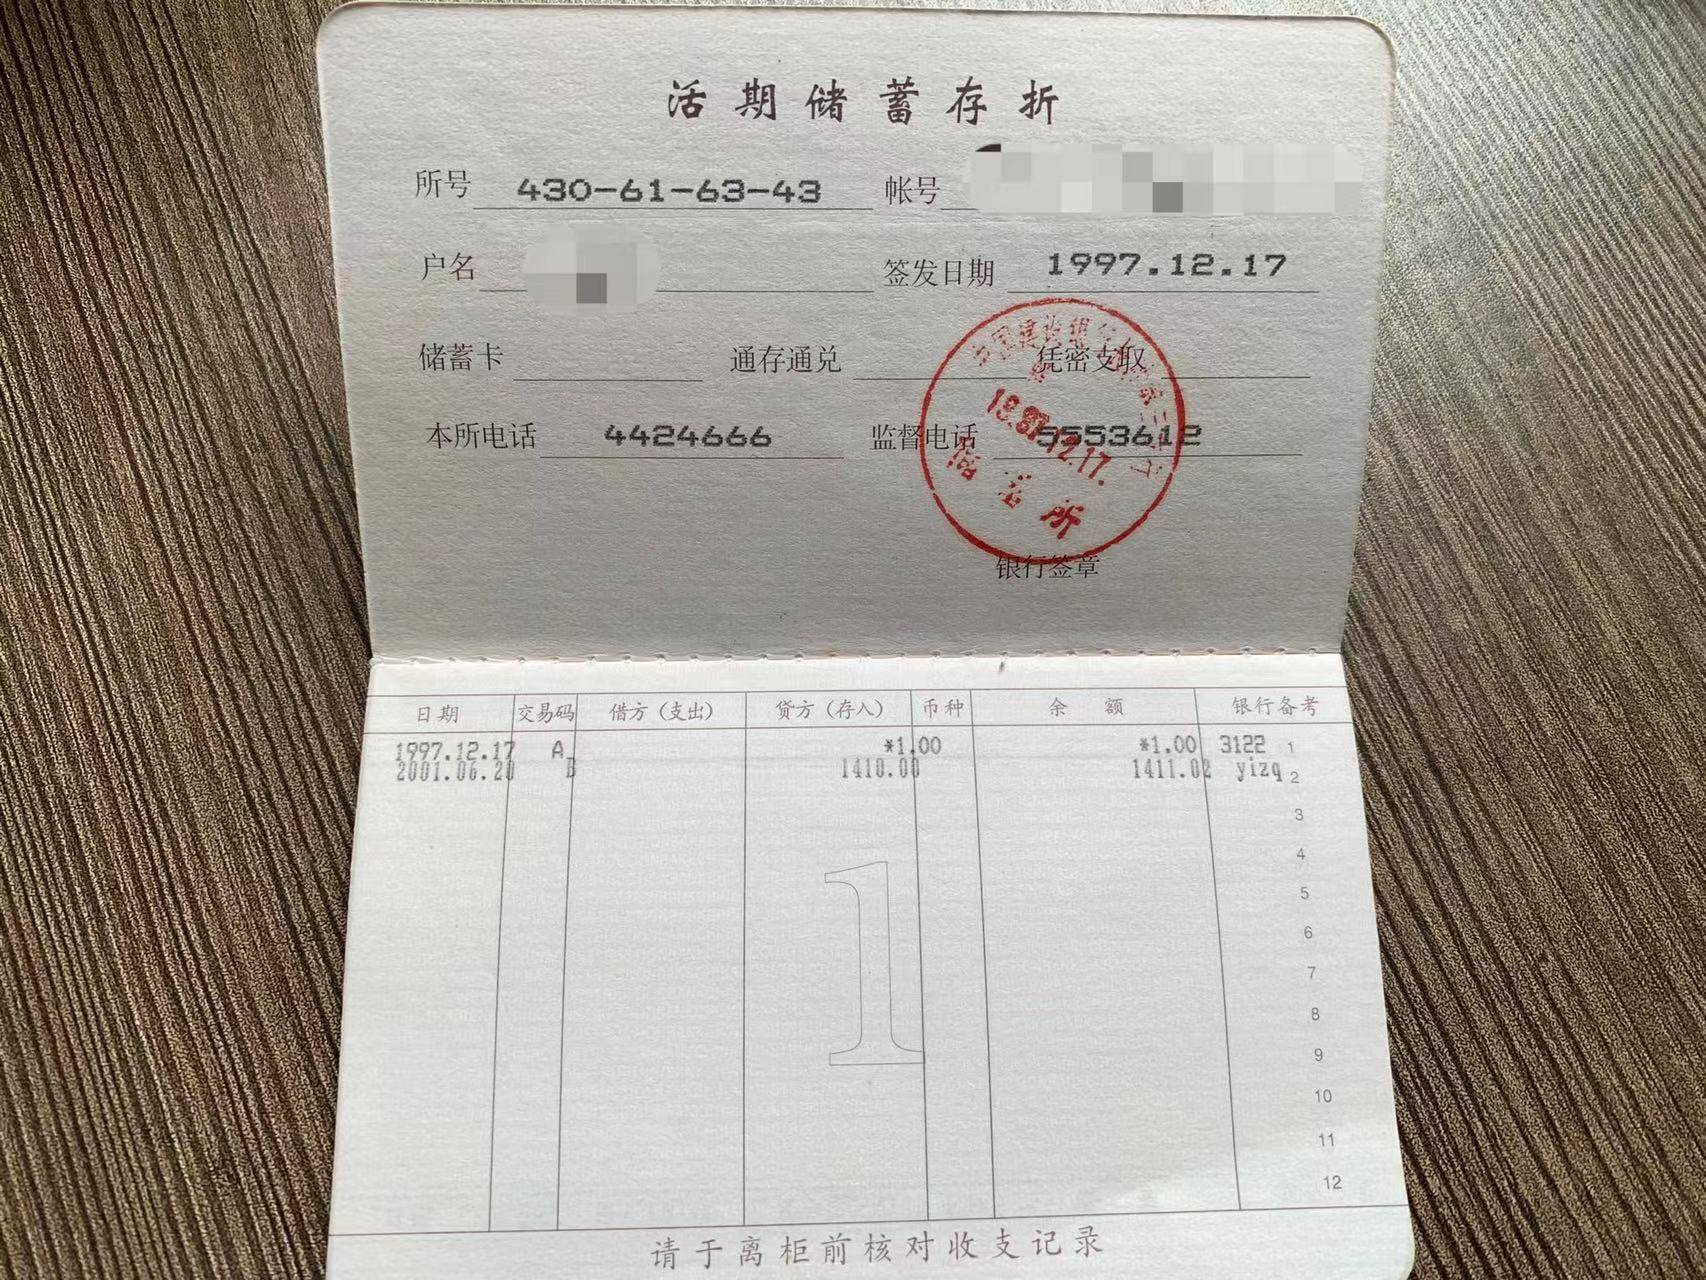 活期储蓄存折
所号 430-61-63-43 帐号
户名 签发日期 1997.12.17
储蓄卡 通存通兑 凭密支取
本所电话 4424666 监督电话 5553612
中国建设银行
12.17.
所
银行签章
日期 交易码 借方（支出） 贷方（存入） 币种 余额 银行备考
1997.12.17 A *1.00 *1.00 3122 1
2001.06.20 B 1410.00 1411.02 yizq 2
3
4
5
6
7
8
9
10
11
12
1
请于离柜前核对收支记录